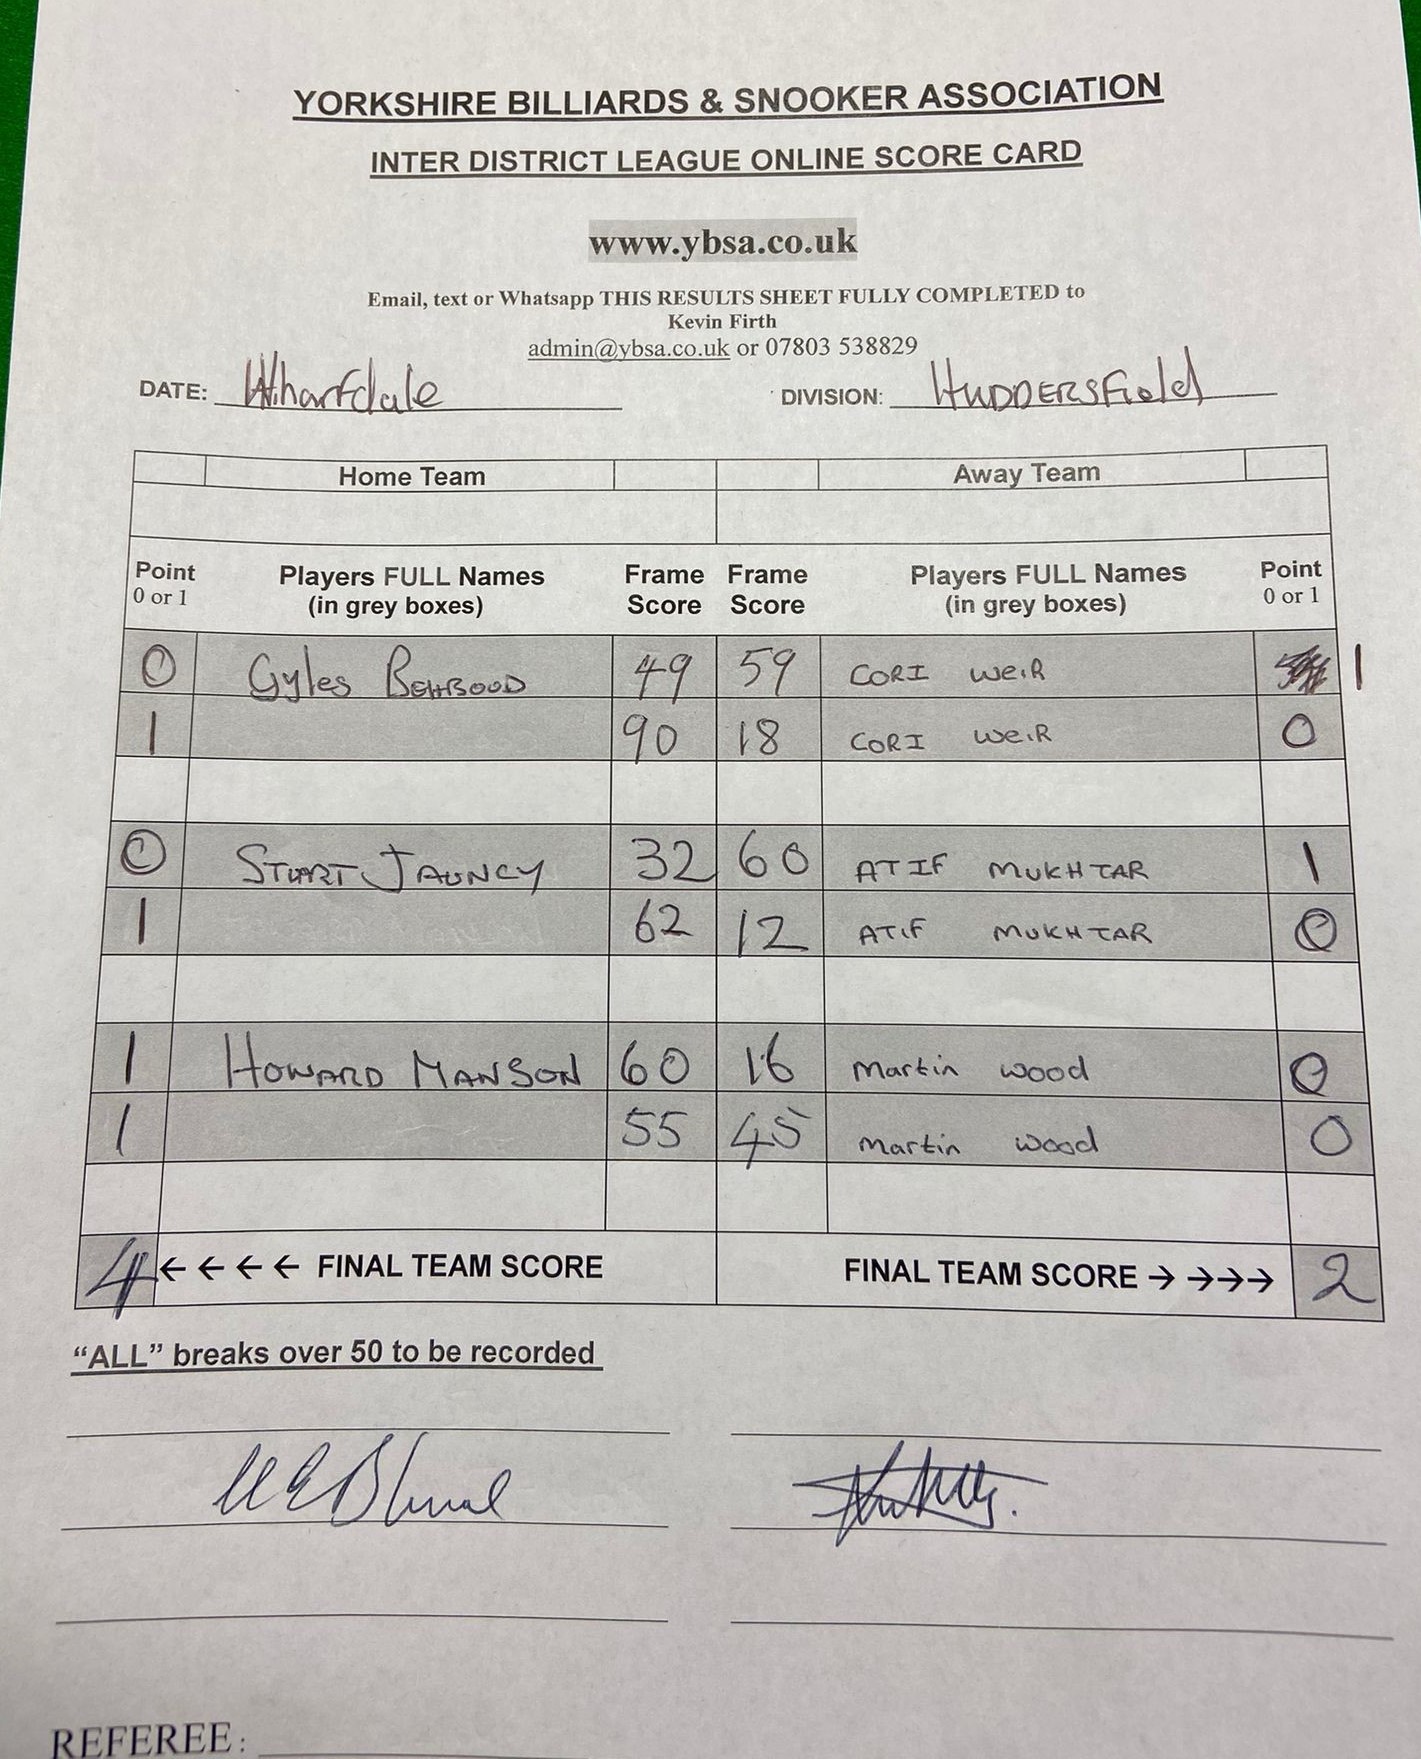 YORKSHIRE BILLIARDS & SNOOKER ASSOCIATION
INTER DISTRICT LEAGUE ONLINE SCORE CARD
www.ybsa.co.uk
Email, text or Whatsapp THIS RESULTS SHEET FULLY COMPLETED to
Kevin Firth
admin@ybsa.co.uk or 07803 538829
DATE: Wharfdale DIVISION: HUDDERSField
Home Team Away Team
Point Players FULL Names Frame Frame Players FULL Names Point
0 or 1 (in grey boxes) Score Score (in grey boxes) 0 or 1
0 Gyles BEHBOOD 49 59 CORI WeiR 1
1 90 18 CORI WeiR 0
0 STUART JAUNCY 32 60 ATIF MUKHTAR 1
1 62 12 ATIF MUKHTAR 0
1 HOWARD MANSON 60 16 Martin wood 0
1 55 45 Martin wood 0
4 ← ← ← ← FINAL TEAM SCORE FINAL TEAM SCORE → →→→ 2
“ALL” breaks over 50 to be recorded
REFEREE: